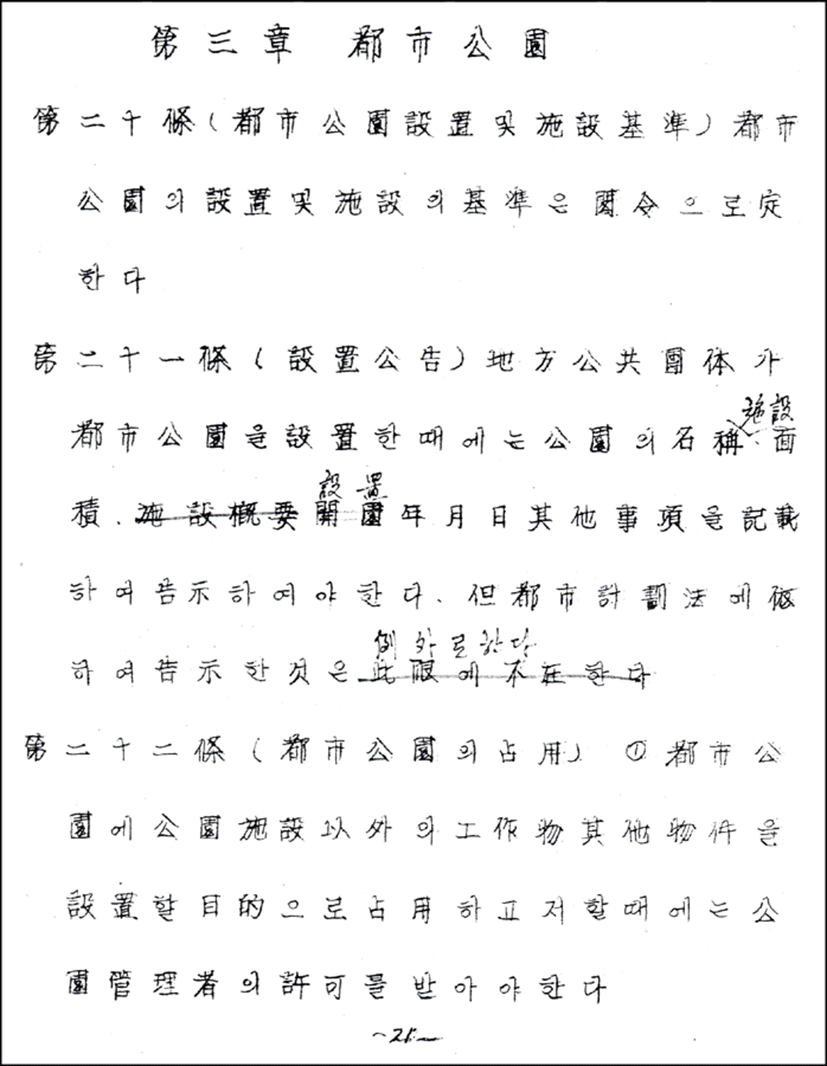 第三章 都市公園
第二十條(都市公園設置및施設基準)都市
公園의設置및施設의基準은閣令으로定
한다
第二十一條(設置公告)地方公共團体가
施設
都市公園을設置한때에는公園의名稱·面
設置
積.施設概要開園年月日其他事項을記載
하여告示하여야한다.但都市計劃法에依
例外로한다
하여告示한것은此限에不在한다
第二十二條(都市公園의占用) ①都市公
園에公園施設以外의工作物其他物件을
設置할目的으로占用하고저할때에는公
園管理者의許可를받아야한다
-21-